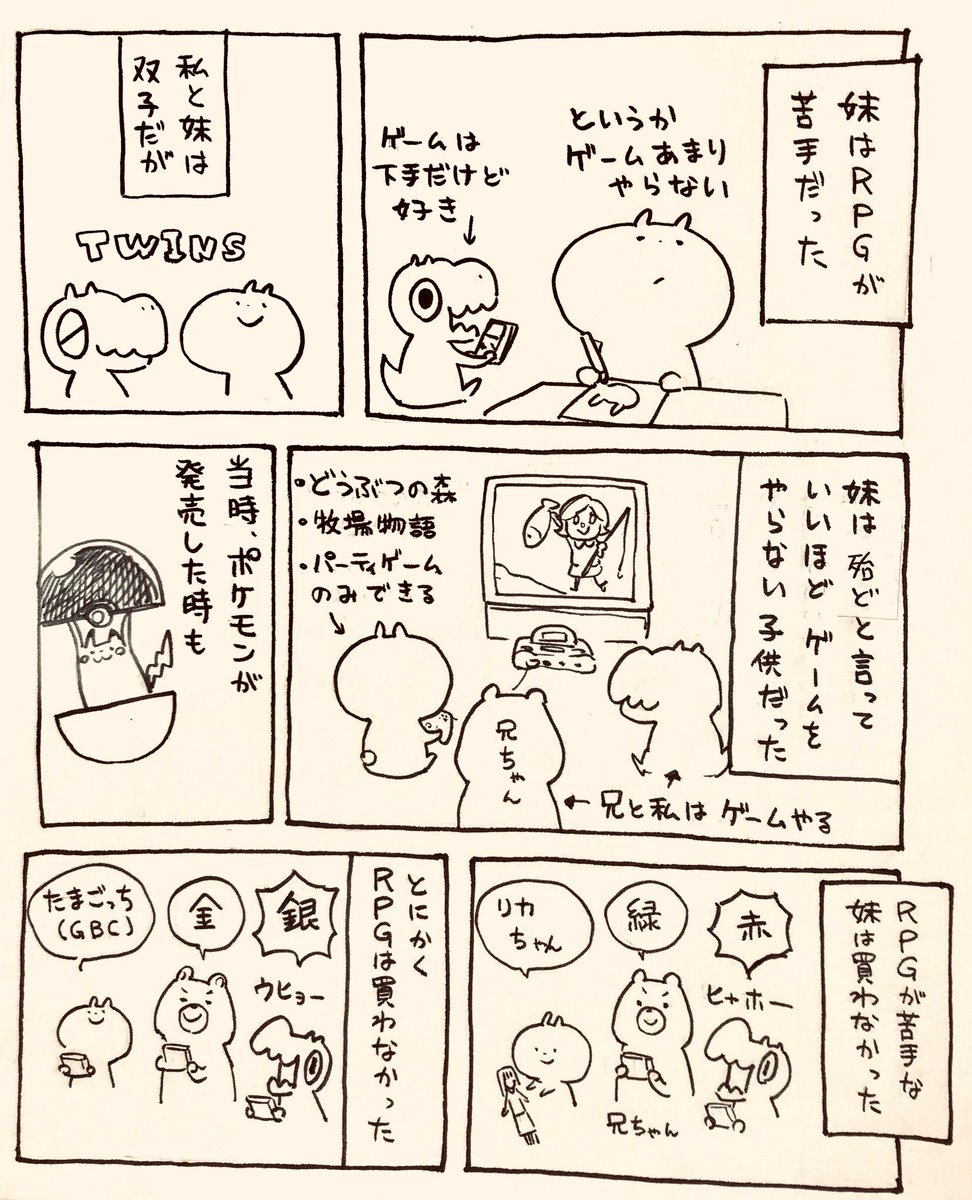 妹はRPGが
苦手だった
というか
ゲームあまり
やらない
ゲームは
下手だけど
好き
私と妹は
双子だが
TWINS
妹は殆ど言って
いいほどゲームを
やらない子供だった
・どうぶつの森
・牧場物語
・パーティゲーム
のみできる
兄ちゃん
兄と私はゲームやる
当時、ポケモンが
発売した時も
RPGが苦手な
妹は買わなかった
赤
ヒャホー
緑
兄ちゃん
リカ
ちゃん
とにかく
RPGは買わなかった
銀
ウヒョー
金
たまごっち
(GBC)